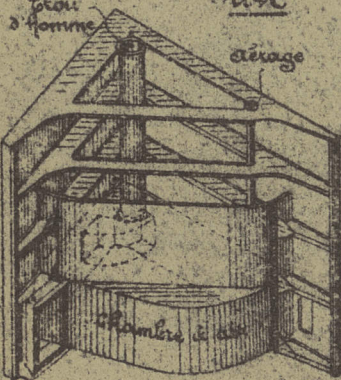 Trou
d'homme
aérage
Chambre à air